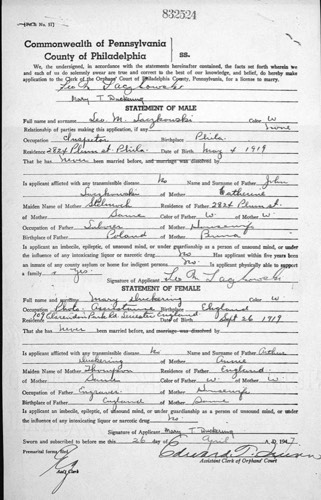 832524
Commonwealth of Pennsylvania
County of Philadelphia
SS.
We, the undersigned, in accordance with the statements hereinafter contained, the facts set forth wherein we
and each of us do solemnly swear are true and correct to the best of our knowledge, and belief, do hereby make
application to the Clerk of the Orphans' Court of Philadelphia County, Pennsylvania, for a license to marry.
Mary T Duckering
STATEMENT OF MALE
Full name and surname Leo. M. Color W
Relationship of parties making this application, if any, None
Occupation Inspector Birthplace Phila.
Residence 2824 Plum st. Phila. Date of Birth May 4 1919
That he has never been married before, and marriage was dissolved by
Is applicant afflicted with any transmissible disease, No Name and Surname of Father John
of Mother Catherine
Maiden Name of Mother Residence of Father 2824 Plum st.
of Mother Same Color of Father W of Mother W
Occupation of Father of Mother Housewife
Birthplace of Father Poland of Mother
Is applicant an imbecile, epileptic, of unsound mind, or under guardianship as a person of unsound mind, or under
the influence of any intoxicating liquor or narcotic drug. Has applicant within five years been
an inmate of any county asylum or home for indigent persons. No. Is applicant physically able to support
a family Yes.
Signature of Applicant
STATEMENT OF FEMALE
Full name and surname Mary Duckering Color W
Occupation Birthplace England
Residence 109 Clarendon Park Rd. Leicester England Date of Birth Sept 26 1919
That she has never been married before, and marriage was dissolved by
Is applicant afflicted with any transmissible disease No Name and Surname of Father Arthur
Duckering of Mother Annie
Maiden Name of Mother Thompson Residence of Father England
of Mother Same Color of Father W of Mother W
Occupation of Father Engraver of Mother Housewife
Birthplace of Father England of Mother
Is applicant an imbecile, epileptic, of unsound mind, or under guardianship as a person of unsound mind, or under the
influence of any intoxicating liquor or narcotic drug.
Signature of Applicant Mary T Duckering
Sworn and subscribed to before me this 26 day of April A.D. 1947
Assistant Clerk of Orphans' Court